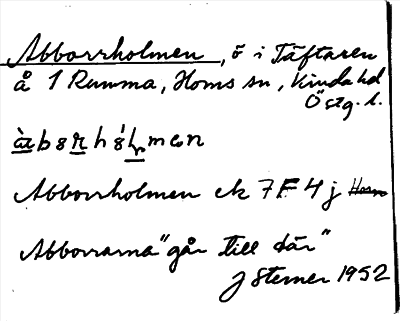 Abborrholmen, ö i Täftaren
å 1 Rumma, Horns sn, Kinda hd
Östg. l.
Abborrholmen ek 7F4j Horn
Abborrarna "går till där"
J Sterner 1952